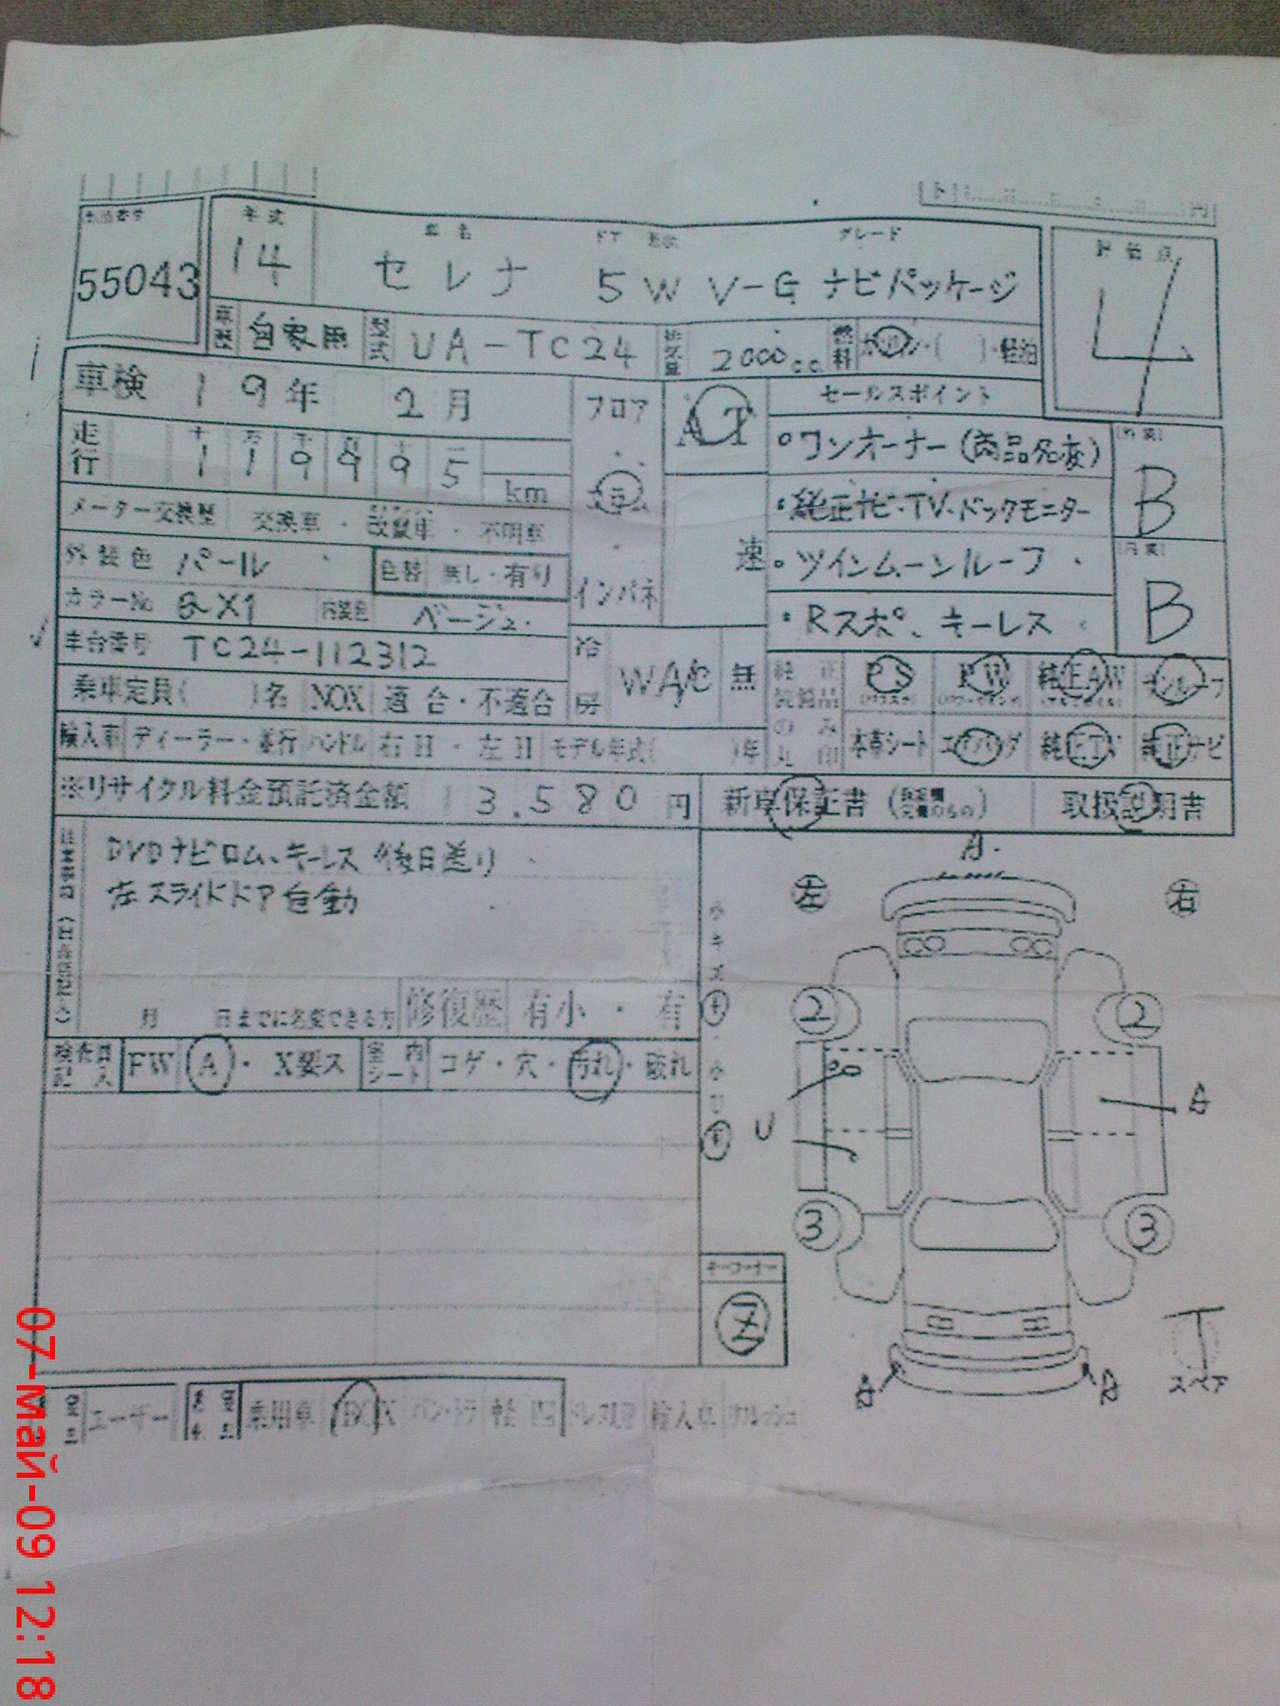 年式 車名 ドア 形状 グレード 評価点
55043 14 セレナ 5W V-G ナビパッケージ 4
車歴 自家用 型式 UA-TC24 排気量 2000cc 燃料 ガソリン・( )・軽油
車検 19年 2月 フロア AT セールスポイント
走行 十 万 千 百 十 一
119995 km
・ワンオーナー(商品名変) B
メーター交換歴 交換車・改ざん車・不明車 コラム ・純正ナビ・TV・バックモニター
外装色 パール 色替 無し・有り インパネ 速 ・ツインムーンルーフ B
カラーNo QX1 内装色 ベージュ ・Rスポ、キーレス
車台番号 TC24-112312 冷房 WA/C 無
乗車定員( )名 NOX 適合・不適合 純正装備品のみ丸印 PS PW 純正AW サンルーフ
輸入車 ディーラー・並行 ハンドル 右H・左H モデル年式( )年 本革シート エアバッグ 純正TV 純正ナビ
※リサイクル料金預託済金額 13.580円 新車保証書 取扱説明書
DVDナビロム、キーレス後日送り A
左スライドドア自動 左 右
月 日までに名変できる方 修復歴 有小・有
検査員記入 FW A・X要ス 室内シート コゲ・穴・汚れ・破れ
2 2
U A
3 3
キーコーナー
Z
A A
スペア
ユーザー 乗用車 BOX バン・トラ 軽四 ドレスUP 輸入車
07-май-09 12:18